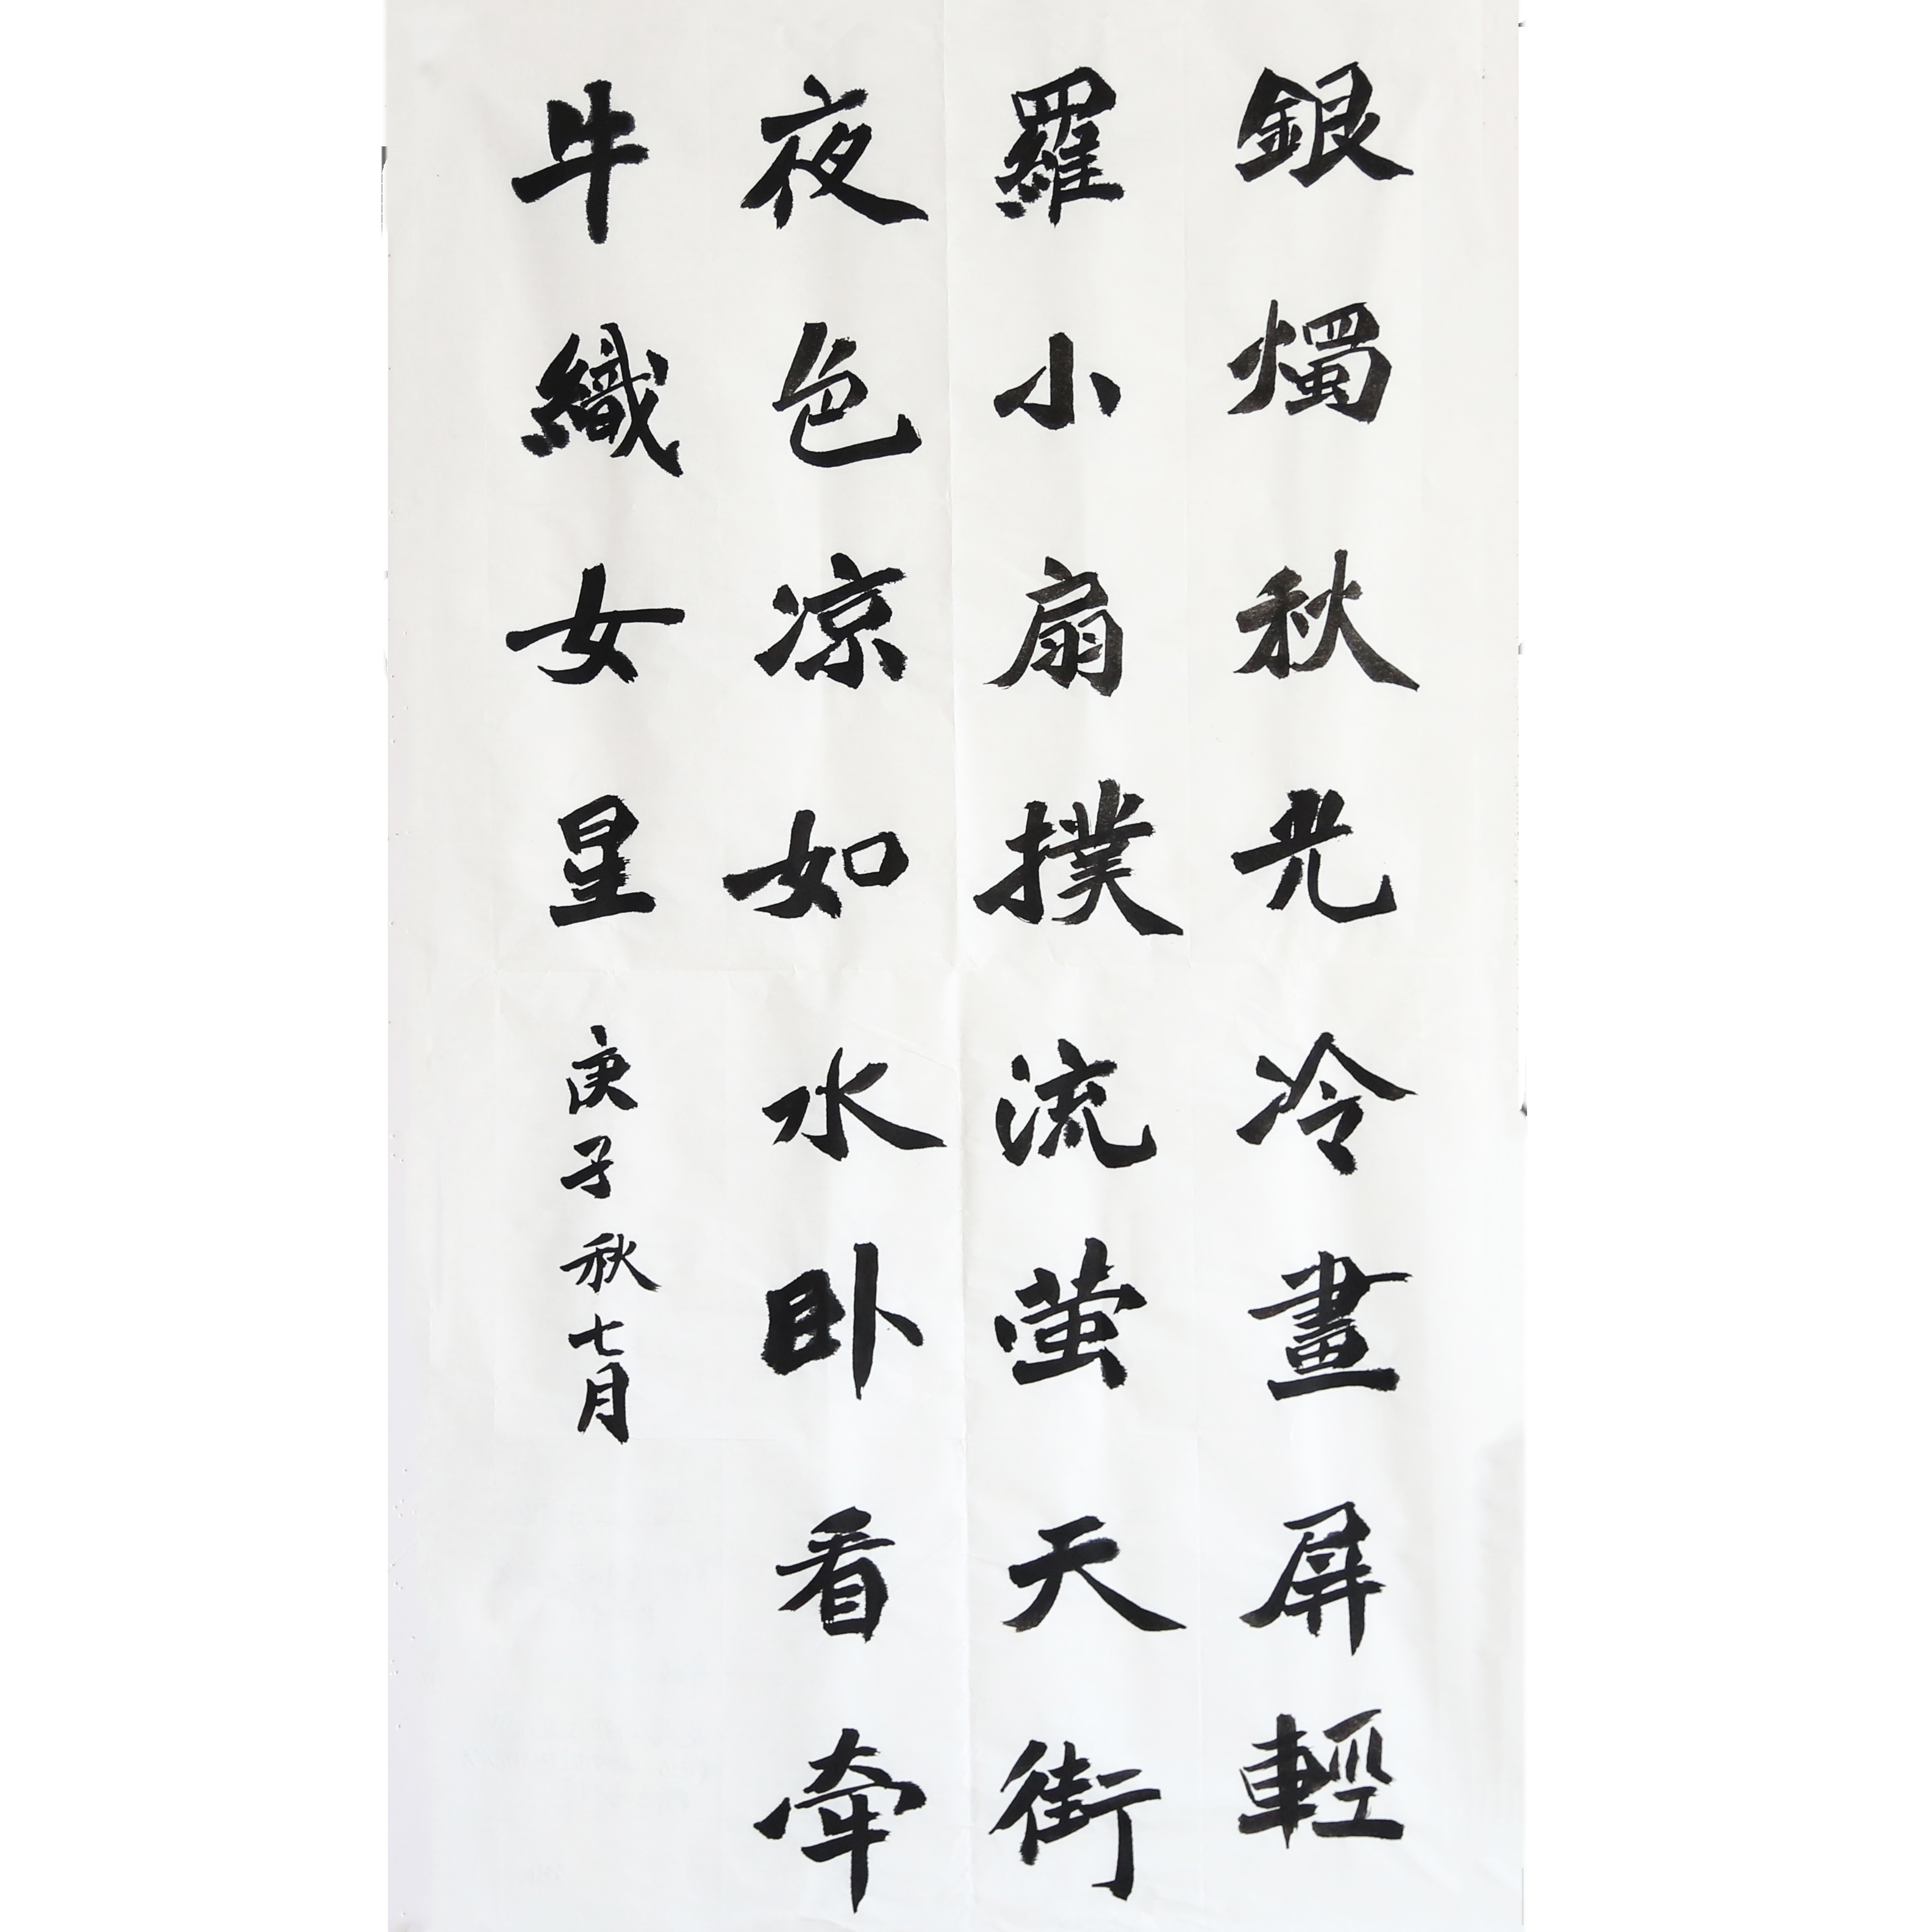 銀燭秋光冷畫屏輕
羅小扇撲流萤天街
夜色凉如水卧看牵
牛織女星
庚子秋七月